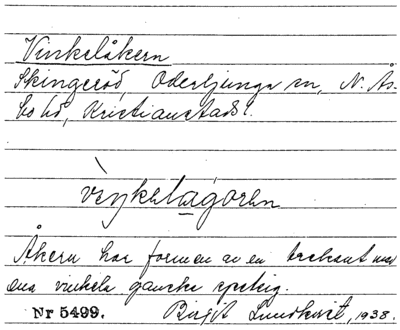 Vinkelåkern
Skingeröd, Oderljunga sn, N. Ås-
bo hd, Kristianstads l.
viŋkelågoren
Åkern har formen av en trekant med
ena vinkeln ganska spetsig.
Nr 5499. Birgit Lundkvist, 1938.